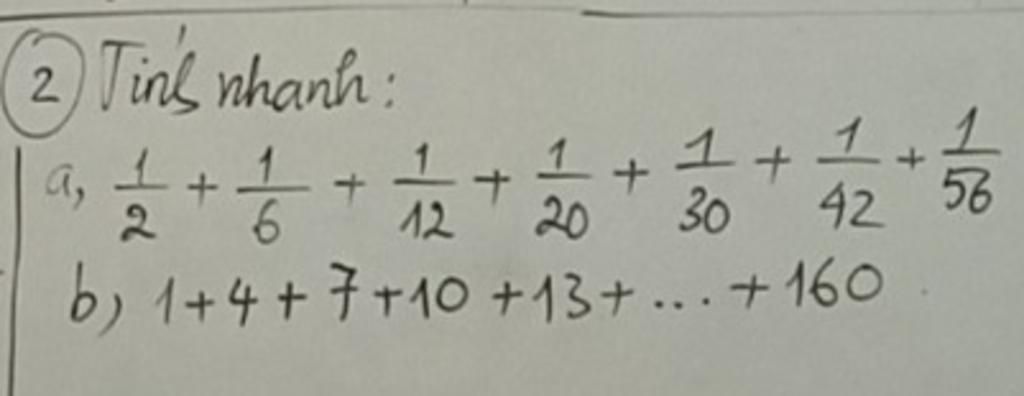 2 Tính nhanh:
a, 1/2 + 1/6 + 1/12 + 1/20 + 1/30 + 1/42 + 1/56
b) 1+4+7+10+13+...+160